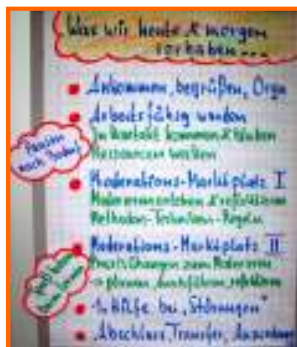 Was wir heute & morgen
vorhaben...
Ankommen, begrüßen, Orga
Arbeitsfähig werden
In Kontakt kommen & bleiben
Ressourcen wecken
Pausen
nach Bedarf
Moderations-Marktplatz I
Moderieren erleben & reflektieren
Methoden-Techniken-Regeln
Moderations-Marktplatz II
Praxis Übungen zum Moderieren
→ planen, durchführen, reflektieren
1. Hilfe bei „Störungen"
Abschluss, Transfer,